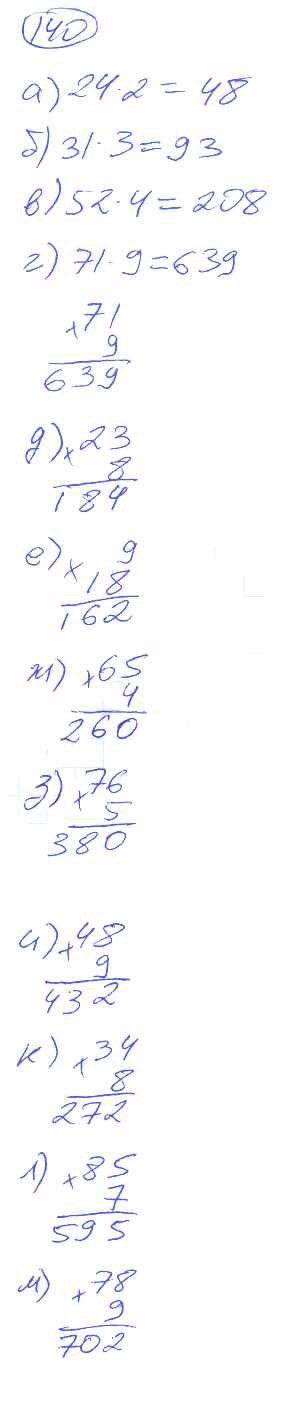 140
а) 24·2 = 48
б) 31·3 = 93
в) 52·4 = 208
г) 71·9 = 639
×71
9
639
д) ×23
8
184
е) × 9
18
162
ж) ×65
4
260
з) ×76
5
380
и) ×48
9
432
к) ×34
8
272
л) ×85
7
595
м) ×78
9
702